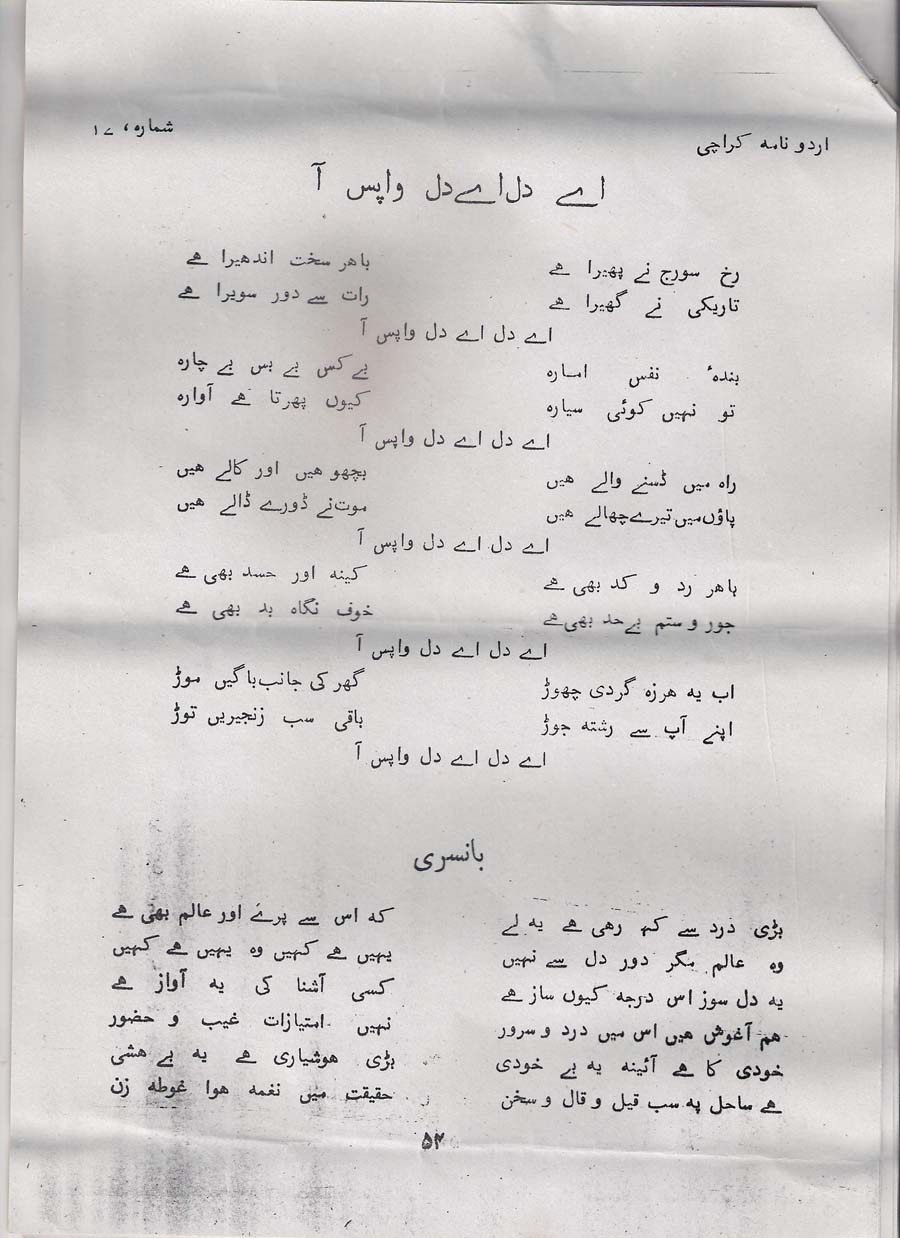 اردو نامہ کراچی
شمارہ، ۱۷
اے دل اے دل واپس آ
رخ سورج نے پھیرا ھے
باھر سخت اندھیرا ھے
تاریکی نے گھیرا ھے
رات سے دور سویرا ھے
اے دل اے دل واپس آ
بندۂ نفس امارہ
بے کس بے بس بے چارہ
تو نہیں کوئی سیارہ
کیوں پھرتا ھے آوارہ
اے دل اے دل واپس آ
راہ میں ڈسنے والے ھیں
بچھو ھیں اور کالے ھیں
پاؤں میں تیرے چھالے ھیں
موت نے ڈورے ڈالے ھیں
اے دل اے دل واپس آ
باھر رد و کد بھی ھے
کینہ اور حسد بھی ھے
جور و ستم بے حد بھی ھے
خوف نگاہ بد بھی ھے
اے دل اے دل واپس آ
اب یہ ھرزہ گردی چھوڑ
گھر کی جانب باگیں موڑ
اپنے آپ سے رشتہ جوڑ
باقی سب زنجیریں توڑ
اے دل اے دل واپس آ
بانسری
بڑی درد سے کہہ رھی ھے یہ لے
کہ اس سے پرے اور عالم بھی ھے
وہ عالم مگر دور دل سے نہیں
یہیں ھے کہیں وہ یہیں ھے کہیں
یہ دل سوز اس درجہ کیوں ساز ھے
کسی آشنا کی یہ آواز ھے
ھم آغوش ھیں اس میں درد و سرور
نہیں امتیازات غیب و حضور
خودی کا ھے آئینہ یہ بے خودی
بڑی ھوشیاری ھے یہ بے ھشی
ھے ساحل پہ سب قیل و قال و سخن
حقیقت میں نغمہ ھوا غوطہ زن
۵۲